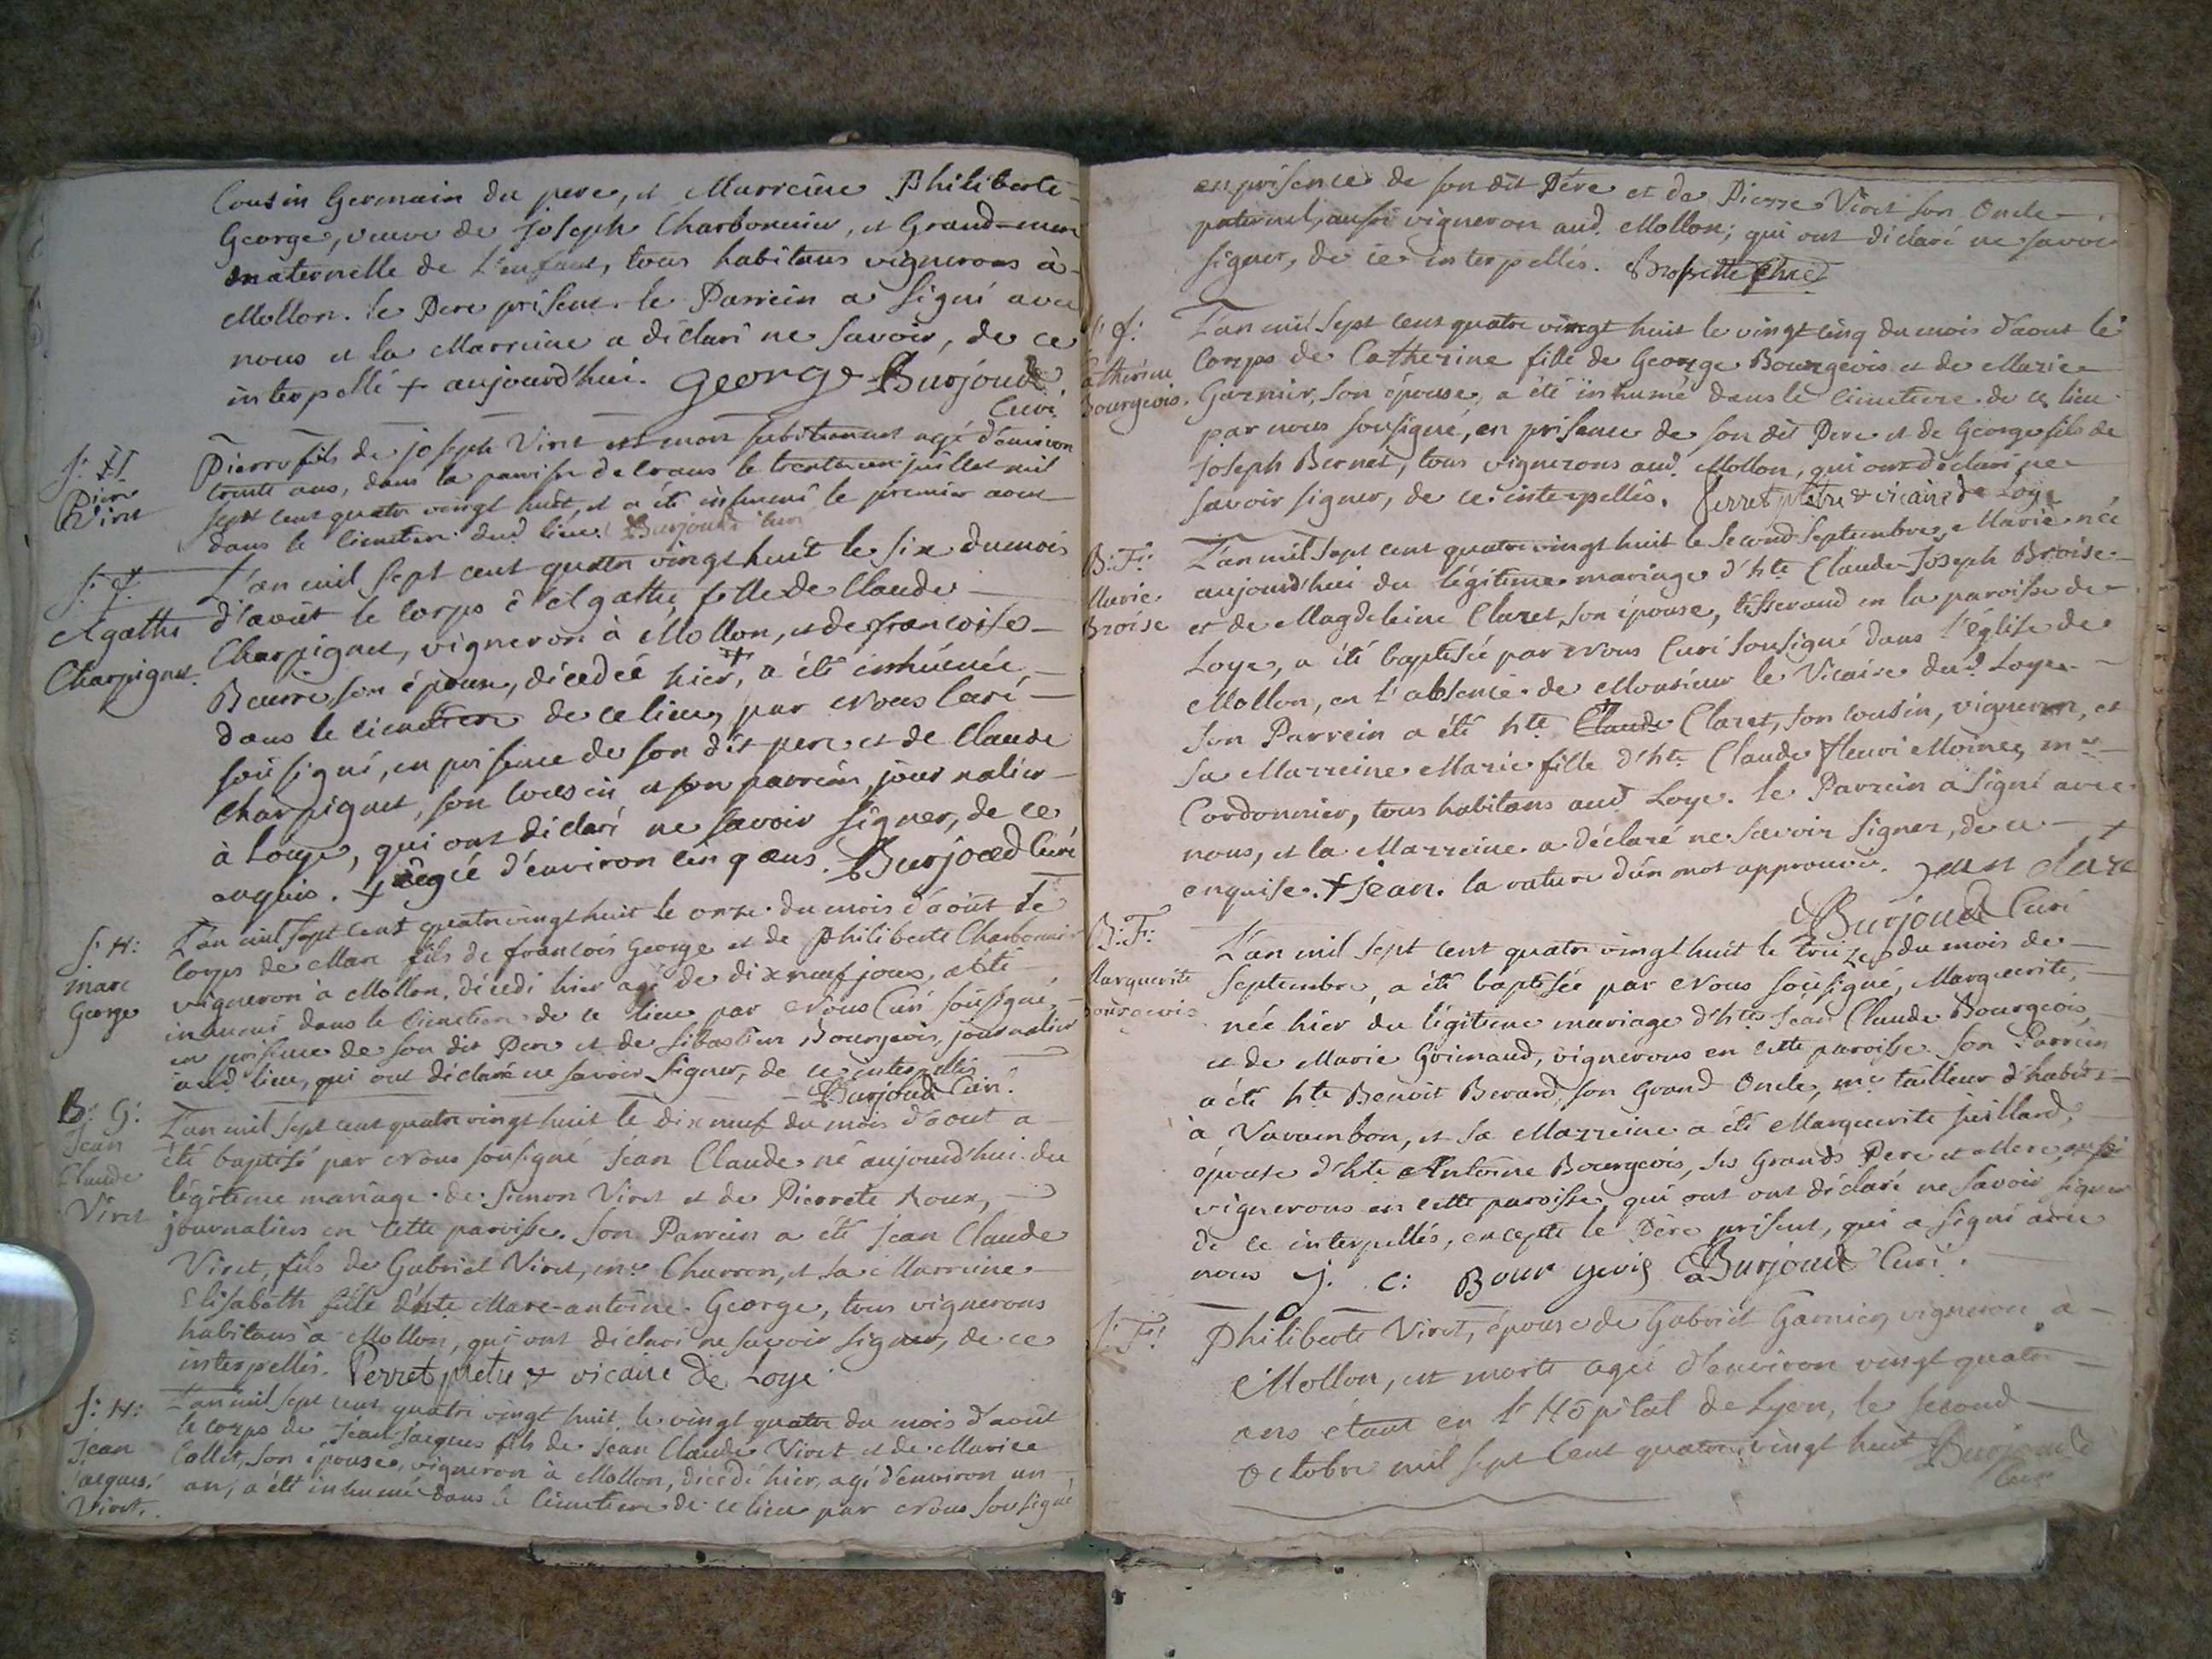 Cousin Germain du pere, et Marreine Philiberte
George, veuve de Joseph Charbonnier, et Grand-mere
maternelle de l'enfant, tous habitans vignerons à
Mollon. le Pere présent. le Parrein a signé avec
nous et la Marreine a déclaré ne savoir, de ce
interpellé + aujourd'hui. George Burjoud
Curé
S: H
Pierre
Viret
Pierre fils de joseph Viret est mort subitement agé d'environ
trente ans, dans la paroisse de le trente un juillet mil
sept cent quatre vingt huit, et a été inhumé le premier aout
dans le cimetiere dud lieu. Burjoud Curé
S: f.
Agathe
Charpignet
L'an mil sept cent quatre vingt huit le six du mois
d'août le corps d'Agathe fille de Claude
Charpignet, vigneron à Mollon, et de francoise
Beurre, son épouse, décedée hier, + a été inhumée
dans le cimetiere de ce lieu, par Nous Curé
soussigné, en présence de son dit pere et de Claude
Charpignet, son cousin et son parrein, journalier
à Loye, qui ont déclaré ne savoir signer, de ce
enquis. + agée d'environ cinq ans. Burjoud Curé
S: H:
marc
George
L'an mil sept cent quatre vingt huit le onze du mois d'août le
corps de Marc fils de francois George et de Philiberte Charbonnier
vigneron à Mollon, décedé hier agé de dix neuf jours, a été
inhumé dans le Cimetiere de ce lieu par Nous Curé soussigné,
en présence de son dit Pere et de Sibastien Bourgeois, journalier
aud. lieu, qui ont déclaré ne savoir signer, de ce interpellés
Burjoud Curé.
B: G:
Jean
Claude
Viret
L'an mil sept cent quatre vingt huit le dix neuf du mois d'aout a
été baptisé par Nous soussigné Jean Claude né aujourd'hui du
légitime mariage de Simon Viret et de Pierrete Roux,
journaliers en cette paroisse. Son Parrein a été Jean Claude
Viret, fils de Gabriel Viret, me Charron, et sa Marreine
Elisabeth fille d'hte Marc-antoine George, tous vignerons
habitans à Mollon, qui ont déclaré ne savoir signer, de ce
interpellés. Perret prêtre & vicaire de Loye
S: H:
Jean
Jacques
Viret.
L'an mil sept cent quatre vingt huit le vingt quatre du mois d'août
le corps de Jean Jacques fils de Jean Claude Viret et de Marie
Collet, son épouse, vigneron à Mollon, décédé hier, agé d'environ un
an, a été inhumé dans le Cimetiere de ce lieu par Nous soussigné
en présence de son dit Pére et de Pierre Viret son Oncle
paternel, aussi vigneron aud. Mollon; qui ont déclaré ne savoir
signer, de ce interpellés.
S: f:
Catherine
Bourgeois.
L'an mil sept cent quatre vingt huit le vingt cinq du mois d'aout le
Corps de Catherine fille de George Bourgeois et de Marie
Garnier, son épouse, a été inhumé dans le Cimetiere de ce lieu
par nous soussigné, en présence de son dit Pere et de George fils de
Joseph Bernet, tous vignerons aud. Mollon, qui ont déclaré ne
savoir signer, de ce interpellés. Perret prêtre & vicaire de Loye
B: F:
Marie
Broise
L'an mil sept cent quatre vingt huit le second Septembre, Marie née
aujourd'hui du légitime mariage d'hte Claude-Joseph Broise
et de Magdeleine Claret, son épouse, tisserand en la paroisse de
Loye, a été baptisée par Nous Curé soussigné dans l'église de
Mollon, en l'absence de Monsieur le Vicaire dud. Loye.
Son Parrein a été hte Claude Claret, son cousin, vigneron, et
sa Marreine Marie fille d'hte Claude fleuri Moine, me
Cordonnier, tous habitans aud. Loye. le Parrein a signé avec
nous, et la Marreine a déclaré ne savoir signer, de ce +
enquise. + Jean. la rature d'un mot approuvée. Jean Clare
Burjoud Curé
B: F:
Marguerite
Bourgeois
L'an mil sept cent quatre vingt huit le treize du mois de
Septembre, a été baptisée par Nous soussigné, Marguerite,
née hier du légitime mariage d'hte Jean Claude Bourgeois,
et de Marie Goimaud, vignerons en cette paroisse. Son Parrein
a été hte Benoit Berard, son Grand Oncle, me tailleur d'habits
à Varambon, et sa Marreine a été Marguerite Juillard,
épouse d'hte Antoine Bourgeois, ses Grands Pere et Mere, aussi
vignerons en cette paroisse, qui ont ont déclaré ne savoir signer
de ce interpellés, excepté le Pére présent, qui a signé avec
nous J. C: Bourgeois Burjoud Curé.
S: F:
Philiberte Viret, épouse de Gabriel Garnier, vigneron à
Mollon, est morte agée d'environ vingt quatre
ans étant en l'Hôpital de Lyon, le second
Octobre mil sept cent quatre vingt huit Burjoud
Curé